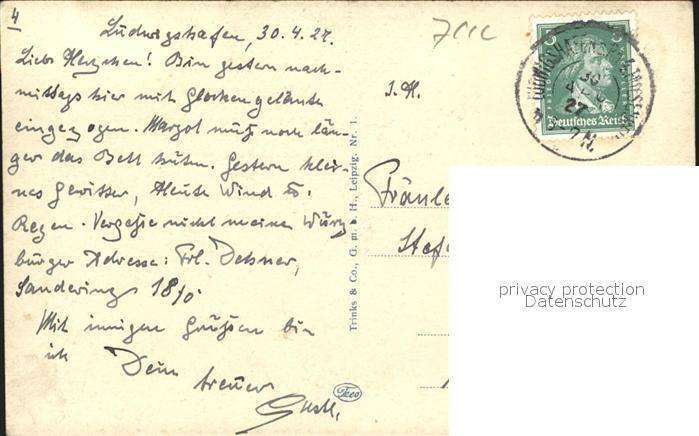 4
Ludwigshafen, 30.4.27.
Liebs Herzchen! Bin gestern nach-
mittags hier mit Glockengeläute
eingezogen. Margot muß noch län-
ger das Bett hüten. Gestern klei-
nes Gewitter, Heute Wind &
Regen. Vergesse nicht meine Würz
burger Adresse: Frl. Detsner,
Sanderring 18/0
Mit innigen Grüßen bin
ich Dein
treuer
Gustl.
Trinks & Co., G. m. b. H., Leipzig. Nr. 1.
Trco
5
Deutsches Reich
30
27
N.
I. H.
Fräule
Stef
privacy protection
Datenschutz